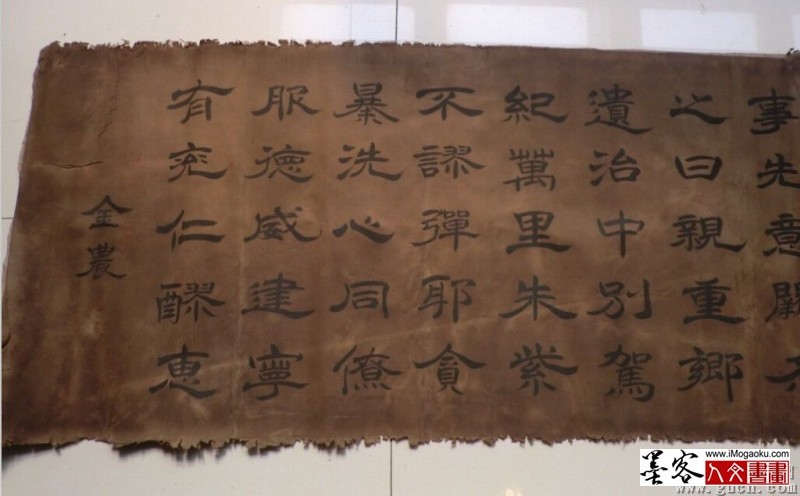 事先意闕
之曰親重鄉
遺治中別駕
紀萬里朱紫
不謬彈耶貪
暴洗心同僚
服德威建寧
有兖仁醪惠
金農
墨客
www.iMogaoku.com
人文書畫
www.gucn.com